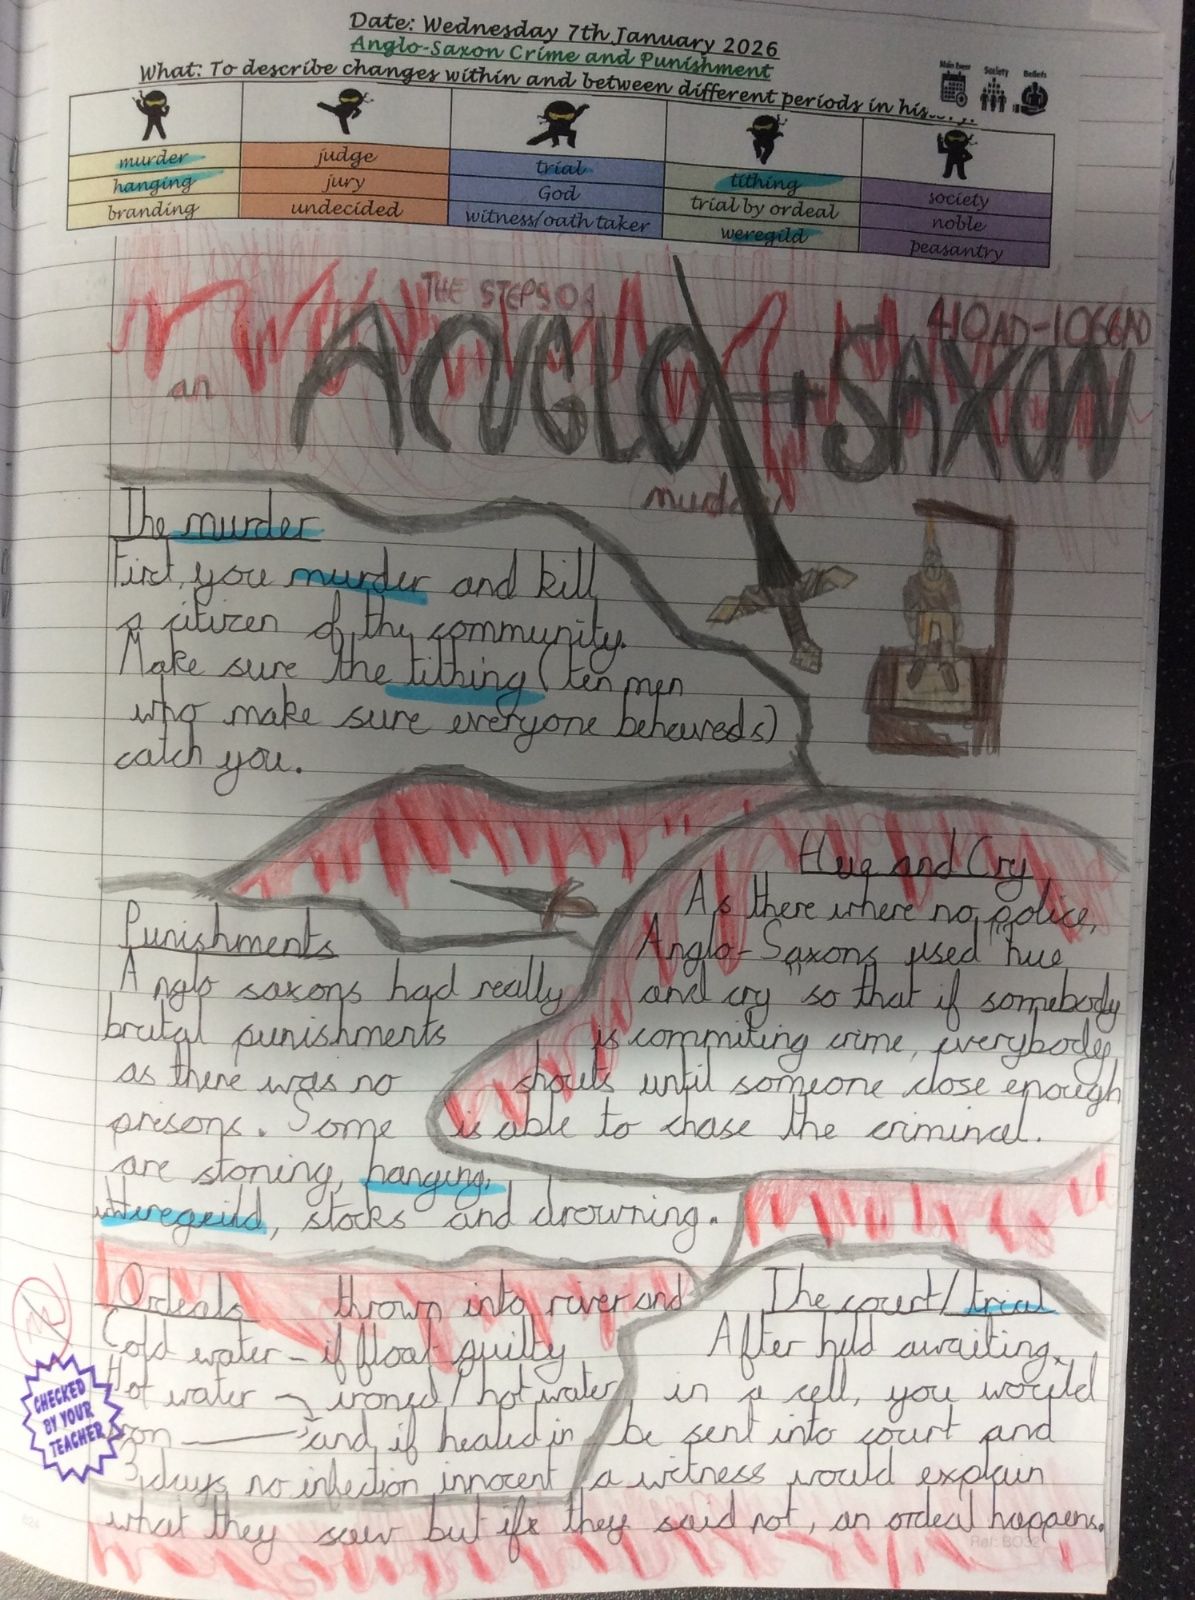 Date: Wednesday 7th January 2026
Anglo-Saxon Crime and Punishment
What: To describe changes within and between different periods in history.
Main Event Society Beliefs
murder judge trial tithing society
hanging jury God trial by ordeal noble
branding undecided witness/oath taker weregild peasantry
THE STEPS OF
410AD-1066AD
an ANGLO-SAXON
murder
The murder
First, you murder and kill
a citizen of the community.
Make sure the tithing (ten men
who make sure everyone behaveds)
catch you.
Hue and Cry
As there where no police,
Anglo-Saxons used "hue
and cry" so that if somebody
is commiting crime, everybody
shouts until someone close enough
is able to chase the criminal.
Punishments
Anglo saxons had really
brutal punishments
as there was no
prisons. Some
are stoning, hanging,
weregeild, stocks and drowning.
Ordeals thrown into river and
Cold water - if float guilty
Hot water ironed/hot water
Iron and if healed in
3 days no infection innocent
The court/trial
After held awaiting
in a cell, you would
be sent into court and
a witness would explain
what they saw but if they said not, an ordeal happens.
CHECKED
BY YOUR
TEACHER